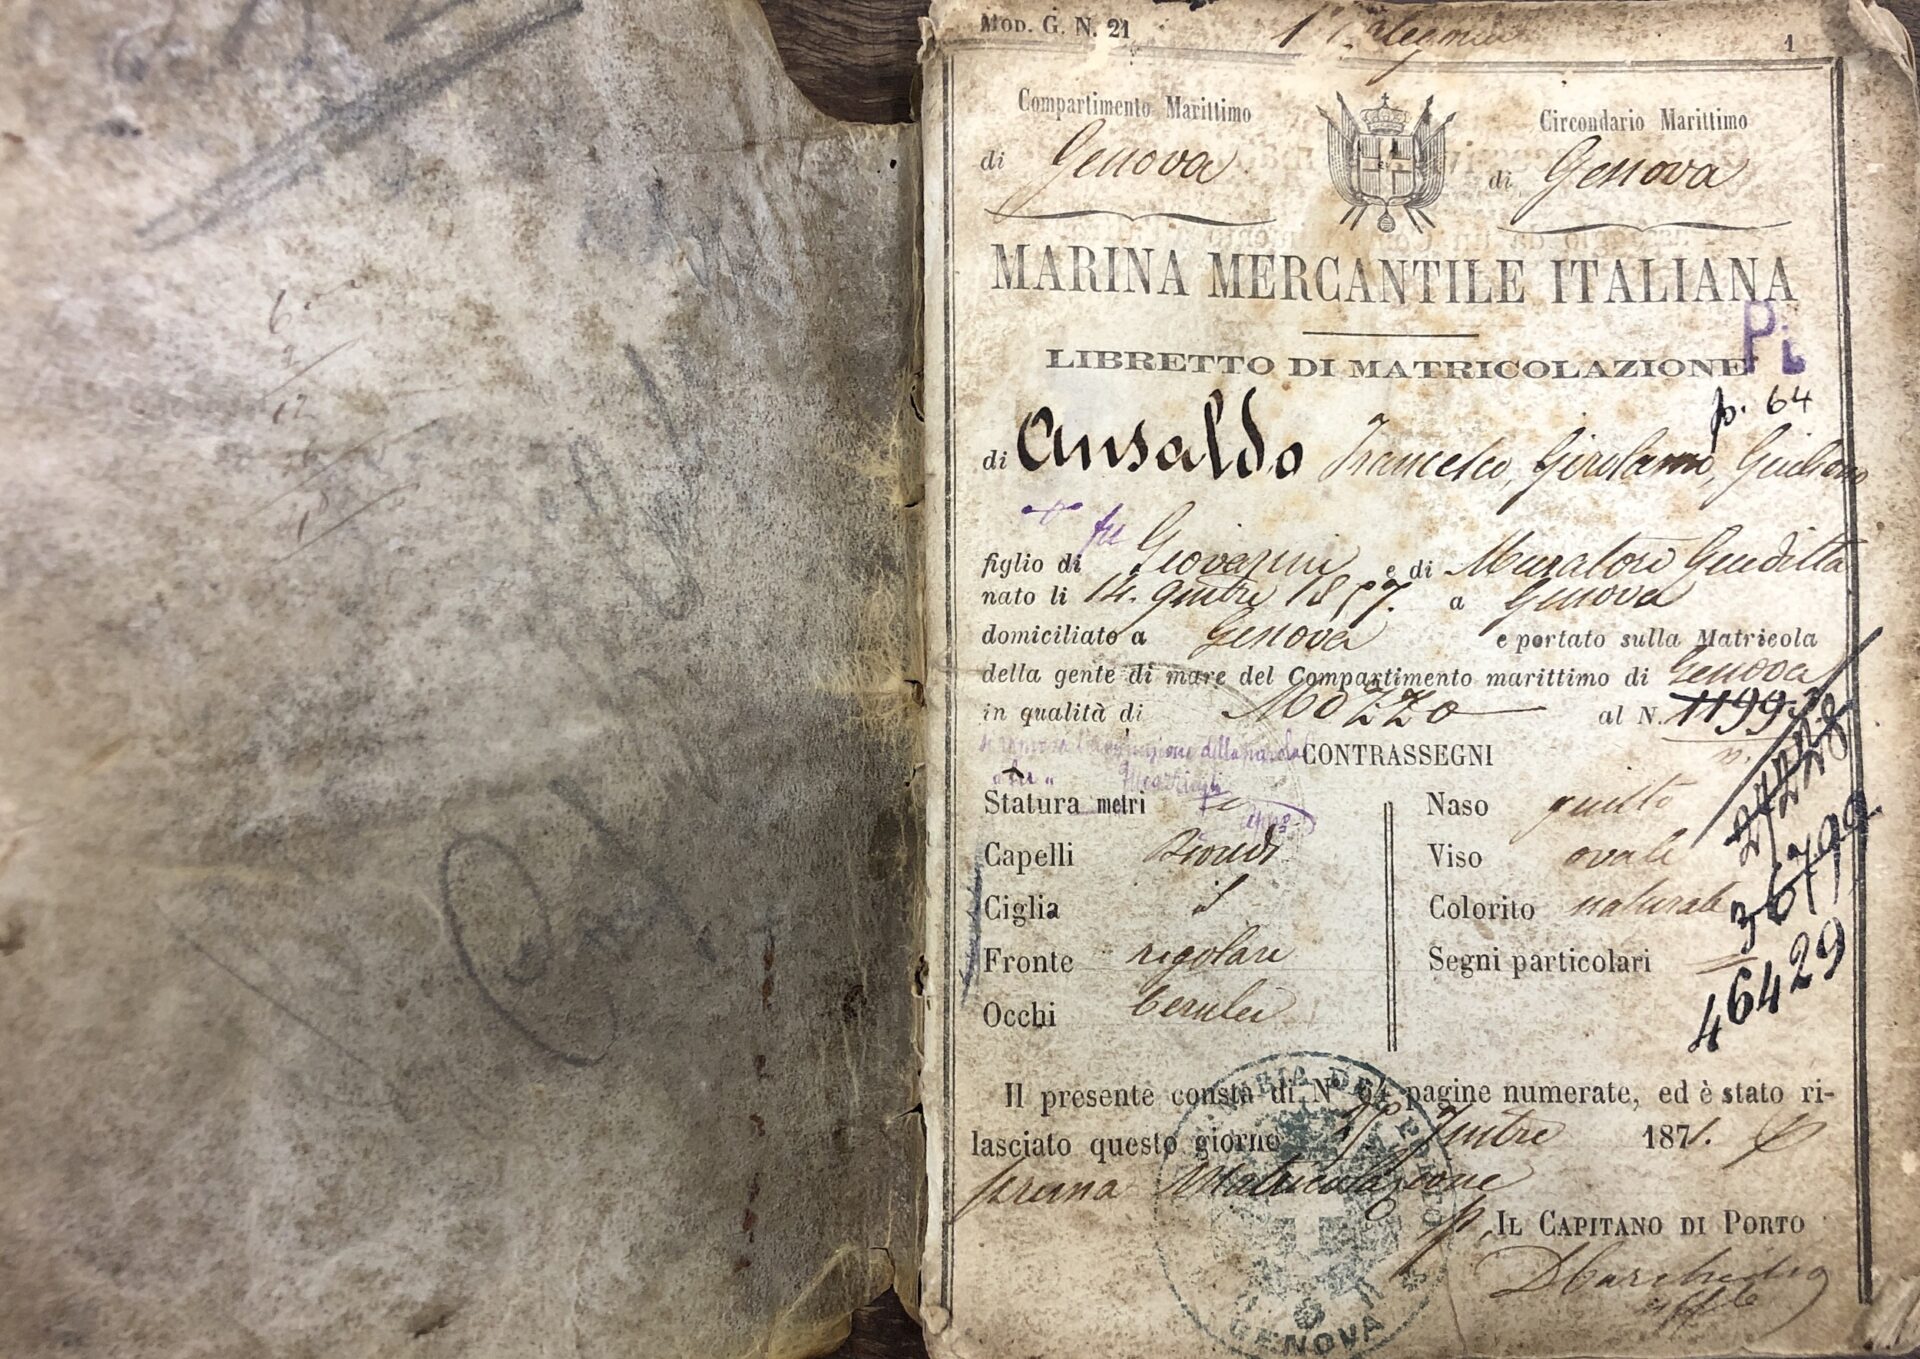 MOD. G. N. 21
1
Compartimento Marittimo
di Genova
Circondario Marittimo
di Genova
MARINA MERCANTILE ITALIANA
Pi
LIBRETTO DI MATRICOLAZIONE
p. 64
di Ansaldo Francesco, Girolamo, Giuliano
fu
figlio di Giovanni e di Muratori Giuditta
nato li 14. 9mbre 1857. a Genova
domiciliato a Genova e portato sulla Matricola
della gente di mare del Compartimento marittimo di Genova
in qualità di Mozzo al N. 11993
27228
CONTRASSEGNI
Statura metri
Naso giusto
Capelli Biondi
Viso ovale
36799
Ciglia
Colorito naturale
Fronte regolare
Segni particolari
46429
Occhi Cerulei
Il presente consta di N 64 pagine numerate, ed è stato ri-
lasciato questo giorno 7mbre 1871.
prima Matricolazione
p. IL CAPITANO DI PORTO
GENOVA